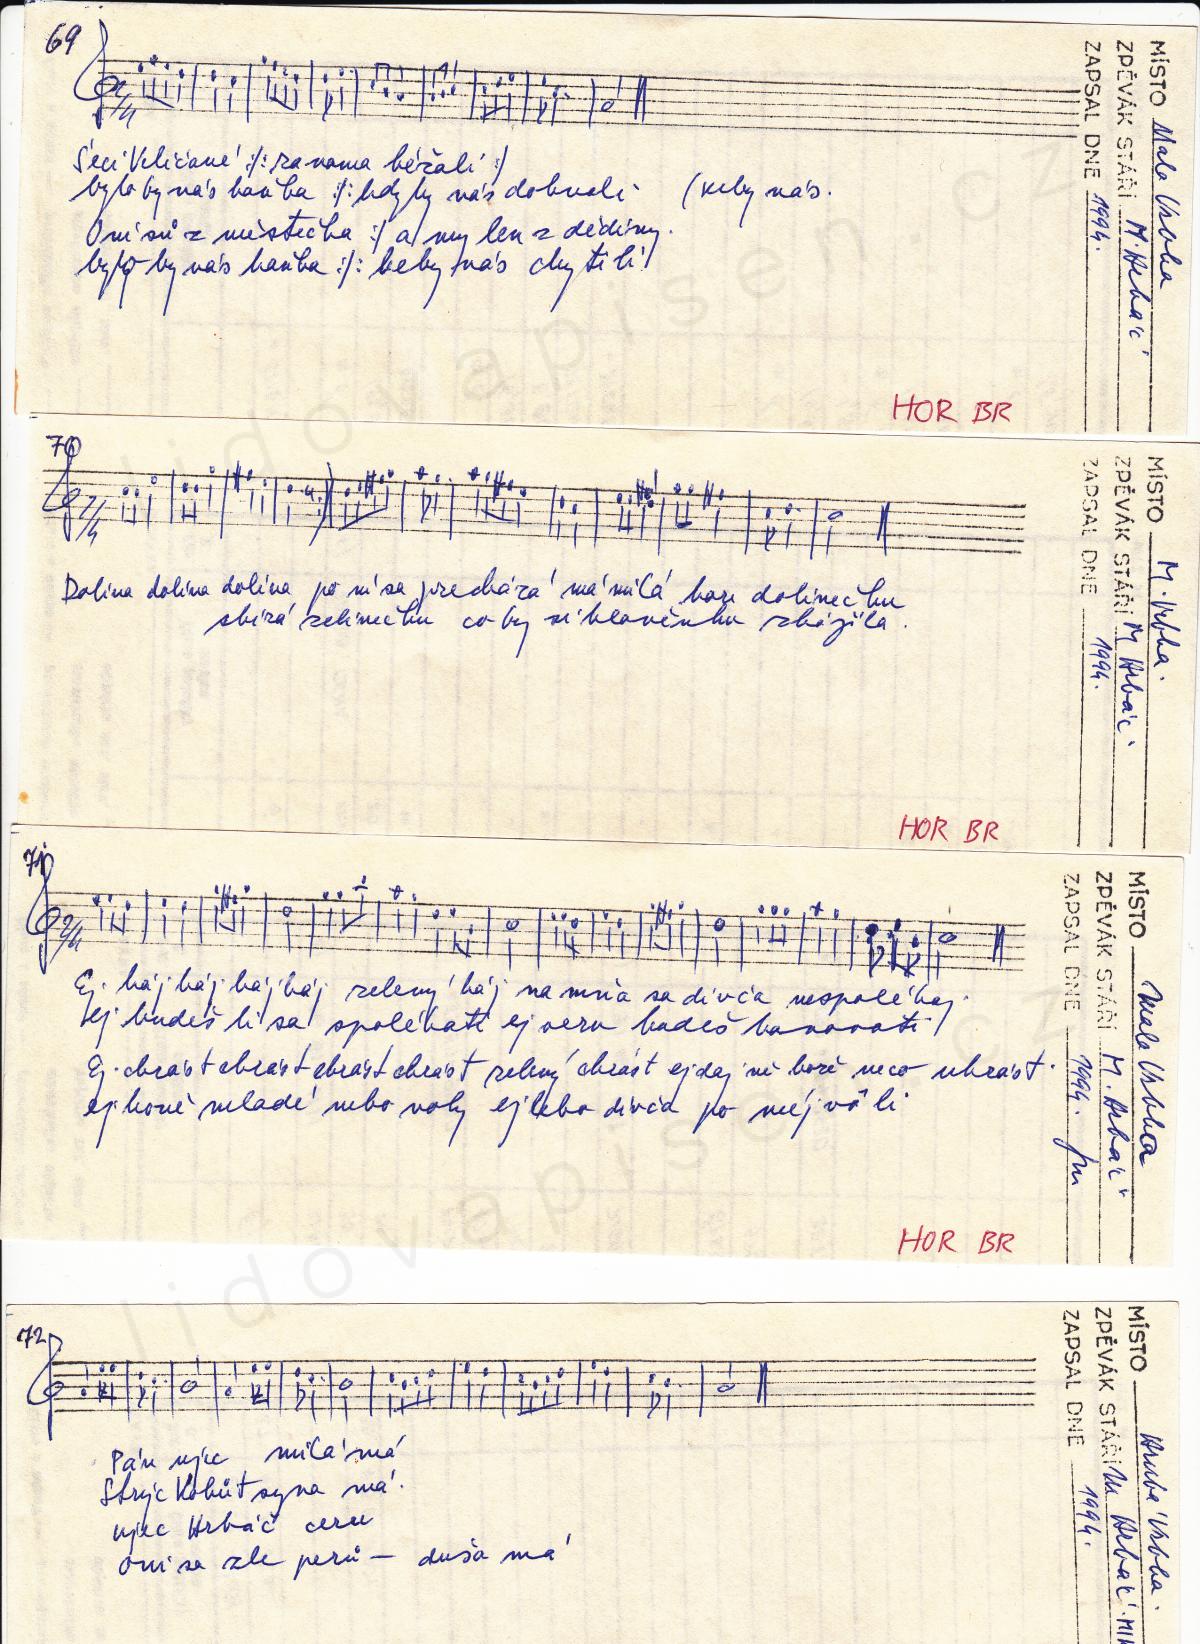 69
2/4
Šeci Veličané :/: za nama běžali :/
bylo by nás haňba :/: kdyby nás dohnali. (keby nás.
Oni sú z městečka :/ a my len z dědiny.
bylo by nás haňba :/: keby nás chytili
MÍSTO Malá Vrbka
ZPĚVÁK STÁŘÍ M. Hrbáč
ZAPSAL DNE 1994.
HOR BR
70
2/4
Dolina dolina dolina po ní sa prechází má milá hore dolinečku
sbírá zelinečku co by si hlavěnku zhojila.
MÍSTO M. Vrbka.
ZPĚVÁK STÁŘÍ M Hrbáč.
ZAPSAL DNE 1994.
HOR BR
71
2/4
Ej. háj háj háj háj zelený háj na mňa sa divča nespoléhaj.
ej budeš li sa spoléhati ej veru budeš banovati
Ej. chrást chrást chrást chrást zelený chrást ej daj ně bože neco ukrást.
ej koně mladé nebo voly ej lebo divča po méj vôli
MÍSTO Malá Vrbka
ZPĚVÁK STÁŘÍ M. Hrbáč
ZAPSAL DNE 1994.
HOR BR
72
Pán ujec milá má
Strýc Kohút syna má.
ujec Hrbáč ceru
oni sa zle perú — duša má
MÍSTO Hrubá Vrbka.
ZPĚVÁK STÁŘÍ M Hrbáč.
ZAPSAL DNE 1994.
lidovapisen.cz
lidovapisen.cz